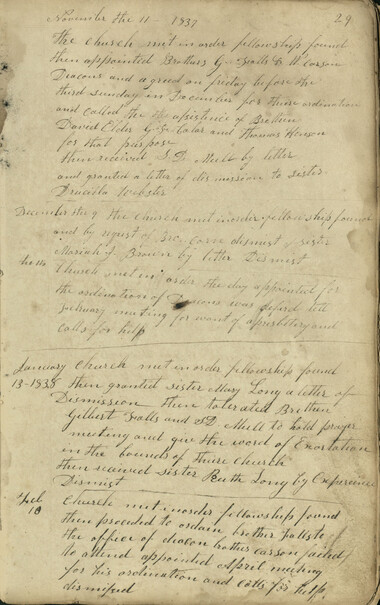 29
November the 11 - 1837
the church met in order fellowship found
then appointed Brothers G. Falls & W Carson
Deacons and agreed on friday before the
third Sunday in December for thire ordination
and called for the assistence of Brethren
David Elder G. and Thomas Henson
for that purpose
then received S. D. Mull by letter
and granted a letter of dismission to sister
Drucilla Webster
December the 9 the Church met in order fellowship found
and by request of Bro. dismist sister
Mariah J. Browne by letter Dismist
the
Church met in order the day appointed for
the ordination of Deacons was defered till
february meeting for want of a presbytery and
calls for help
January Church met in order fellowship found
13-1838 then granted sister Mary Long a letter of
Dismission then tolerated Brethren
Gilbert Falls and S D Mull to hold prayer
meeting and give the word of Exortation
in the bounds of thire Church
then received sister Ruth Long by Experience
Dismist
Feb Church met in order fellowship found
10 then proceded to ordain brother Falls to
the office of deacon brother Carson failed
to attend appointed April meeting
for his ordination and calls for help
dismised